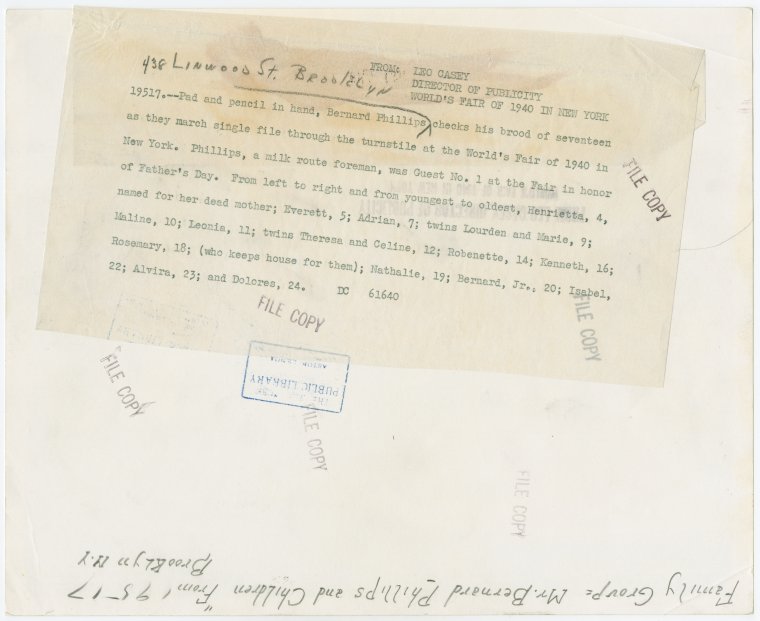 438 LINWOOD ST. BROOKLYN
FROM: LEO CASEY
DIRECTOR OF PUBLICITY
WORLD'S FAIR OF 1940 IN NEW YORK
19517.--Pad and pencil in hand, Bernard Phillips checks his brood of seventeen
as they march single file through the turnstile at the World's Fair of 1940 in
New York. Phillips, a milk route foreman, was Guest No. 1 at the Fair in honor
of Father's Day. From left to right and from youngest to oldest, Henrietta, 4,
named for her dead mother; Everett, 5; Adrian, 7; twins Lourden and Marie, 9;
Maline, 10; Leonia, 11; twins Theresa and Celine, 12; Robenette, 14; Kenneth, 16;
Rosemary, 18; (who keeps house for them); Nathalie, 19; Bernard, Jr., 20; Isabel,
22; Alvira, 23; and Dolores, 24. DC 61640
FILE COPY
FILE COPY
FILE COPY
FILE COPY
PUBLIC LIBRARY
FILE COPY
FILE COPY
Family Group: Mr. Bernard Phillips and Children "From 19517
Brooklyn N.Y